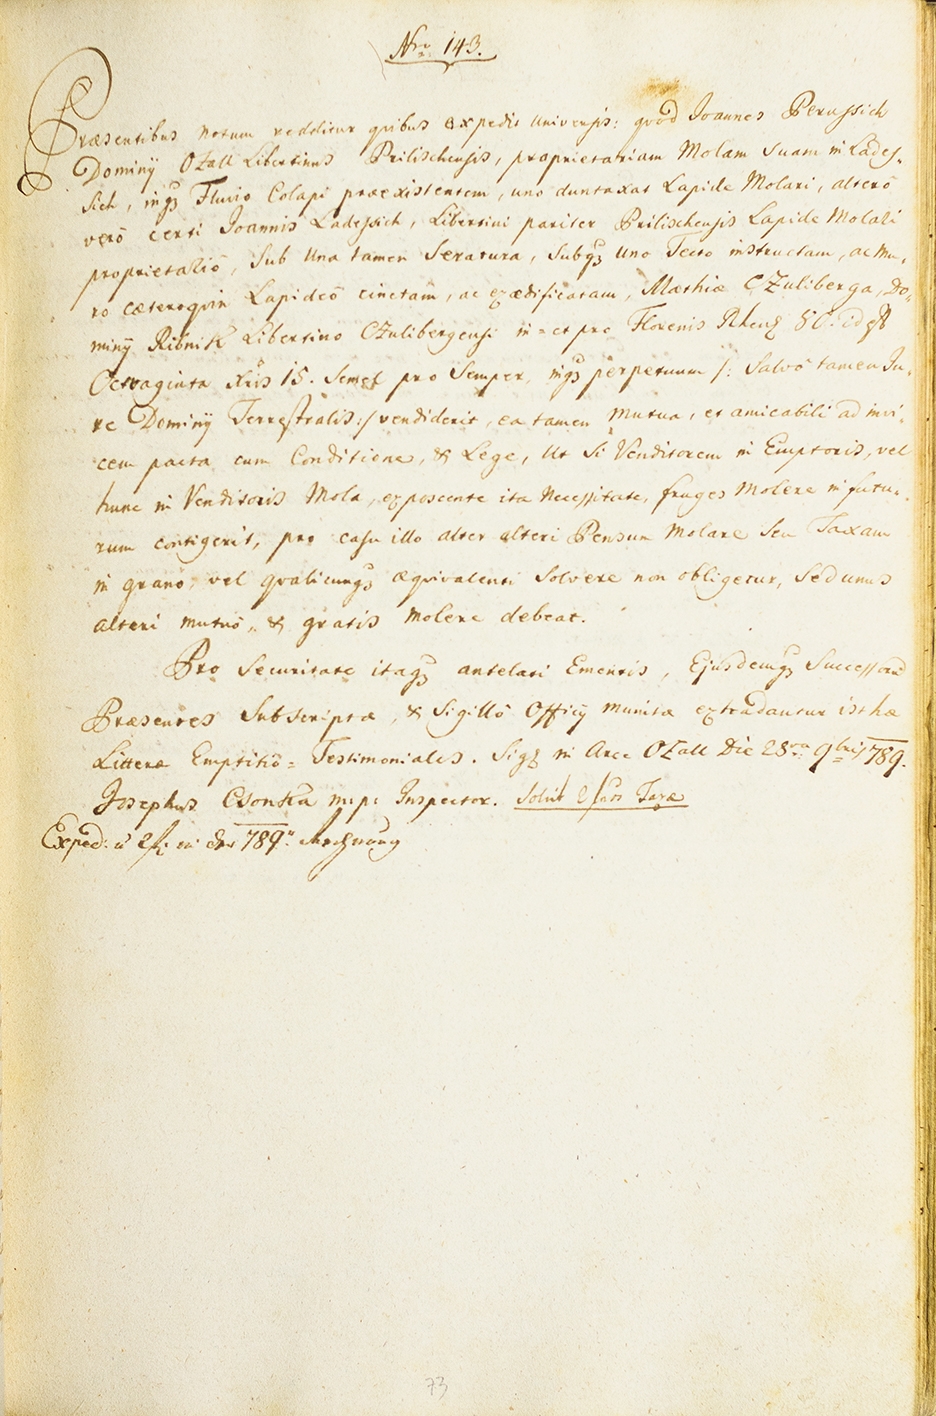 Nro 143.
Præsentibus notum redditur quibus expedit universis: quod Joannes Perussich
Dominÿ Ozall Libertinus Prilischensis, proprietariam Molam suam in Lades-
sich, inqz Fluvio Colapi præexistentem, uno duntaxat Lapide Molari, alterô
verô certi Joannis Ladessich, Libertini pariter Prilischensis Lapide Molari
proprietariô, sub una tamen Seratura, subqz uno Tecto instructam, ac mu-
ro cæteroquin Lapideô cinctam, ac exædificatam, Mathiæ CZuliberga, Do-
minÿ Ribnik Libertino CZulibergensi in = et pro Florenis Rhens 80. id est
Octvaginta Xris 15. Semel pro Semper, inqz perpetuum /: Salvô tamen Ju-
re Dominÿ Terrestralis :/ vendiderit, ea tamen mutua, et amicabili ad invi-
cem pacta cum Conditione, & Lege, Ut Si Venditorem in Emptoris, vel
hunc in Venditoris Mola, exposcente ita Necessitate, fruges Molere in futu-
rum contigerit, pro casu illo alter alteri Pensum Molare Seu Taxam
in granô, vel qualicunqz æquivalenti Solvere non obligetur, Sed unus
alteri mutuô, & gratis Molere debeat.
Pro Securitate itaqz antelati Ementis, Ejusdemqz Successorum
Præsentes Subscriptæ, & Sigillô Officÿ munitæ extradantur isthæ
Litteræ Emptitiô = Testimoniales. Sigz in Arce OZall Die 28va 9bris 1789.
Josephus Csonka mpr Inspector. Solvit 2 Taxæ
Exped: à 2 f: in der 789r Rechnung
73